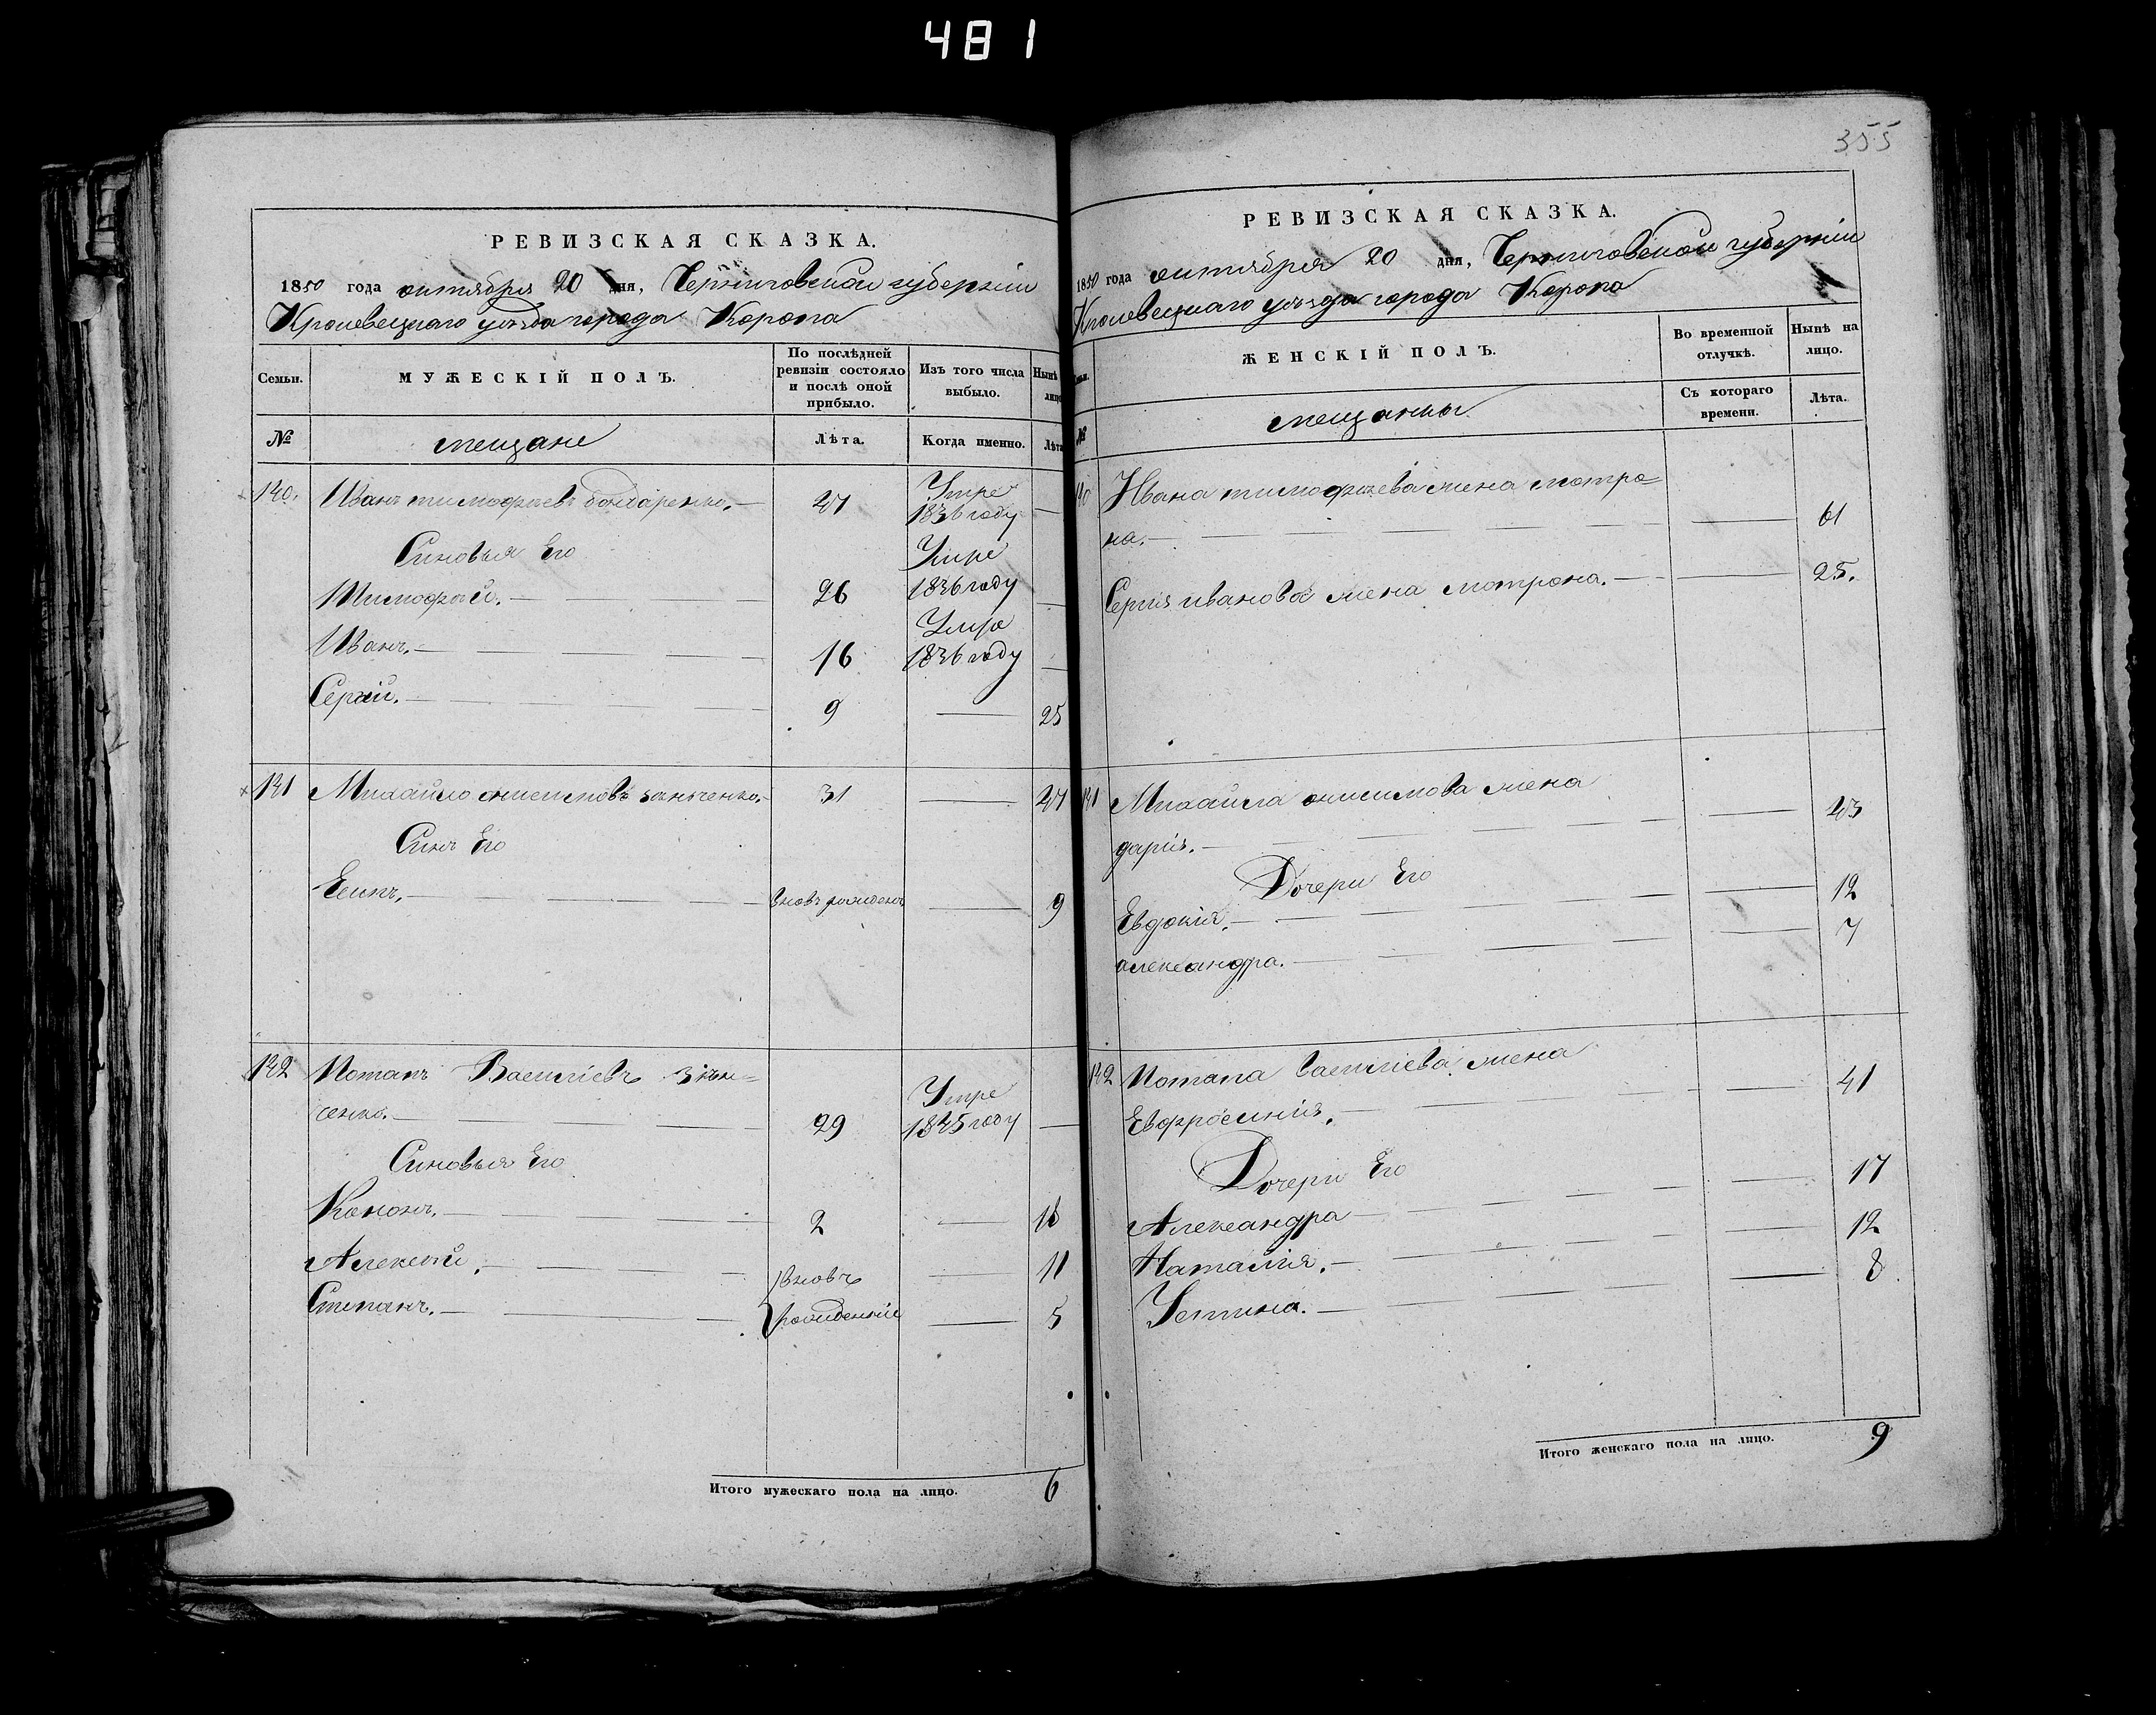 481
355
РЕВИЗСКАЯ СКАЗКА.
1850 года октября 20 дня, Черниговской губерніи
Кролевецкаго уѣзда города Коропа
Семьи.
МУЖЕСКІЙ ПОЛЪ.
По послѣдней ревизіи состояло и послѣ оной прибыло.
Изъ того числа выбыло.
Нынѣ
лицо
№
мещане
Лѣта.
Когда именно.
Лѣта
140. Иванъ тимофѣевъ бондаренко. 47 Умре 1836 году
Синовья Его
Тимофѣй. 26 Умре 1836 году
Иванъ. 16 Умре 1836 году
Сергій. 9 25
141 Михайло онисимовъ 31 47
Синъ Его
Есипъ. вновь рожденъ 9
142 Потапъ Василіевъ
сенко. 29 Умре 1845 году
Синовья Его
Кононъ. 2 18
Алексѣй. вновь 11
Степанъ. рожденніе 5
Итого мужескаго пола на лицо. 6
РЕВИЗСКАЯ СКАЗКА.
1850 года октября 20 дня, Черниговской губерніи
Кролевецкаго уѣзда города Коропа
ЖЕНСКІЙ ПОЛЪ.
Во временной отлучкѣ.
Нынѣ на лицо.
№
мещанки
Съ котораго времени.
Лѣта.
140 Ивана тимофѣева жена мотро=
на. 61
Сергія иванова жена мотрона. 25.
141 Михайла онисимова жена
дарія. 43
Дочери Его
Евдокія. 12
александра. 7
142 Потапа василіева жена
Евфросинія. 41
Дочери Его
Александра 17
Наталія. 12
Устина. 8
Итого женскаго пола на лицо. 9